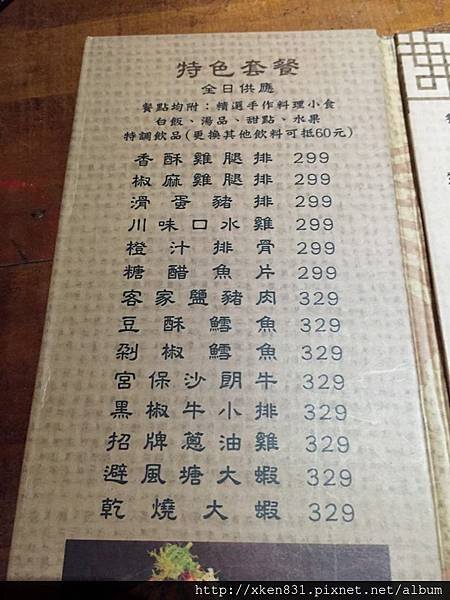 特色套餐
全日供應
餐點均附：精選手作料理小食
白飯、湯品、甜點、水果
特調飲品(更換其他飲料可抵60元)
香酥雞腿排 299
椒麻雞腿排 299
滑蛋豬排 299
川味口水雞 299
橙汁排骨 299
糖醋魚片 299
客家鹽豬肉 329
豆酥鱈魚 329
剁椒鱈魚 329
宮保沙朗牛 329
黑椒牛小排 329
招牌蔥油雞 329
避風塘大蝦 329
乾燒大蝦 329
http://xken831.pixnet.net/album